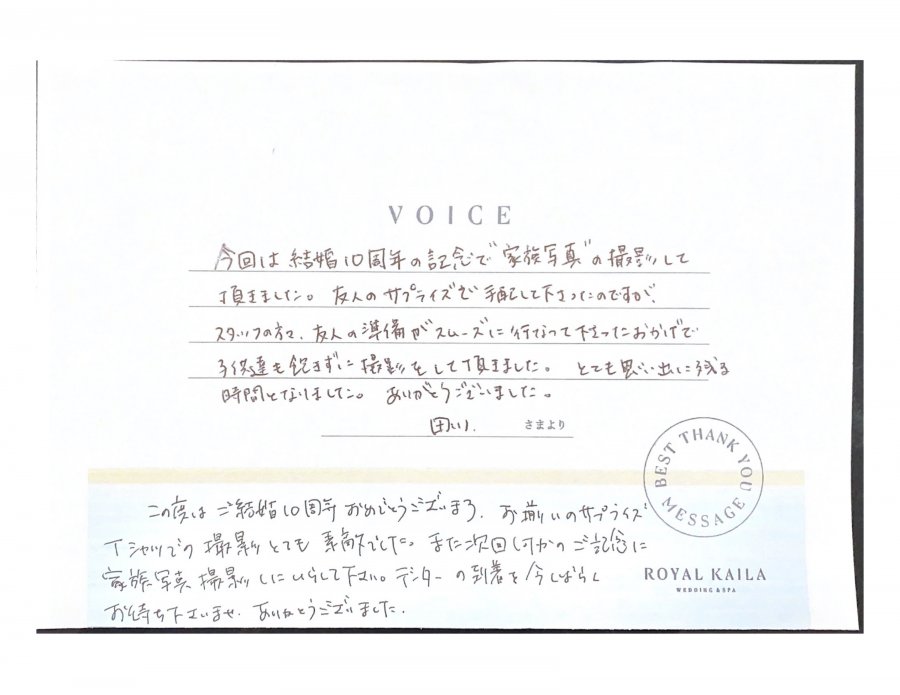 VOICE
今回は結婚10周年の記念で"家族写真"の撮影して
頂きました。友人のサプライズで手配して下さったのですが、
スタッフの方々、友人の準備がスムーズに行なって下さったおかげで
子供達も飽きずに撮影をして頂きました。とても思い出に残る
時間となりました。ありがとうございました。
さまより
BEST THANK YOU MESSAGE
この度はご結婚10周年おめでとうございます。お揃いのサプライズ
Tシャツでの撮影とても素敵でした。また次回何かのご記念に
家族写真撮影しにいらして下さい。データーの到着を今しばらく
お待ち下さいませ。ありがとうございました。
ROYAL KAILA
WEDDING & SPA